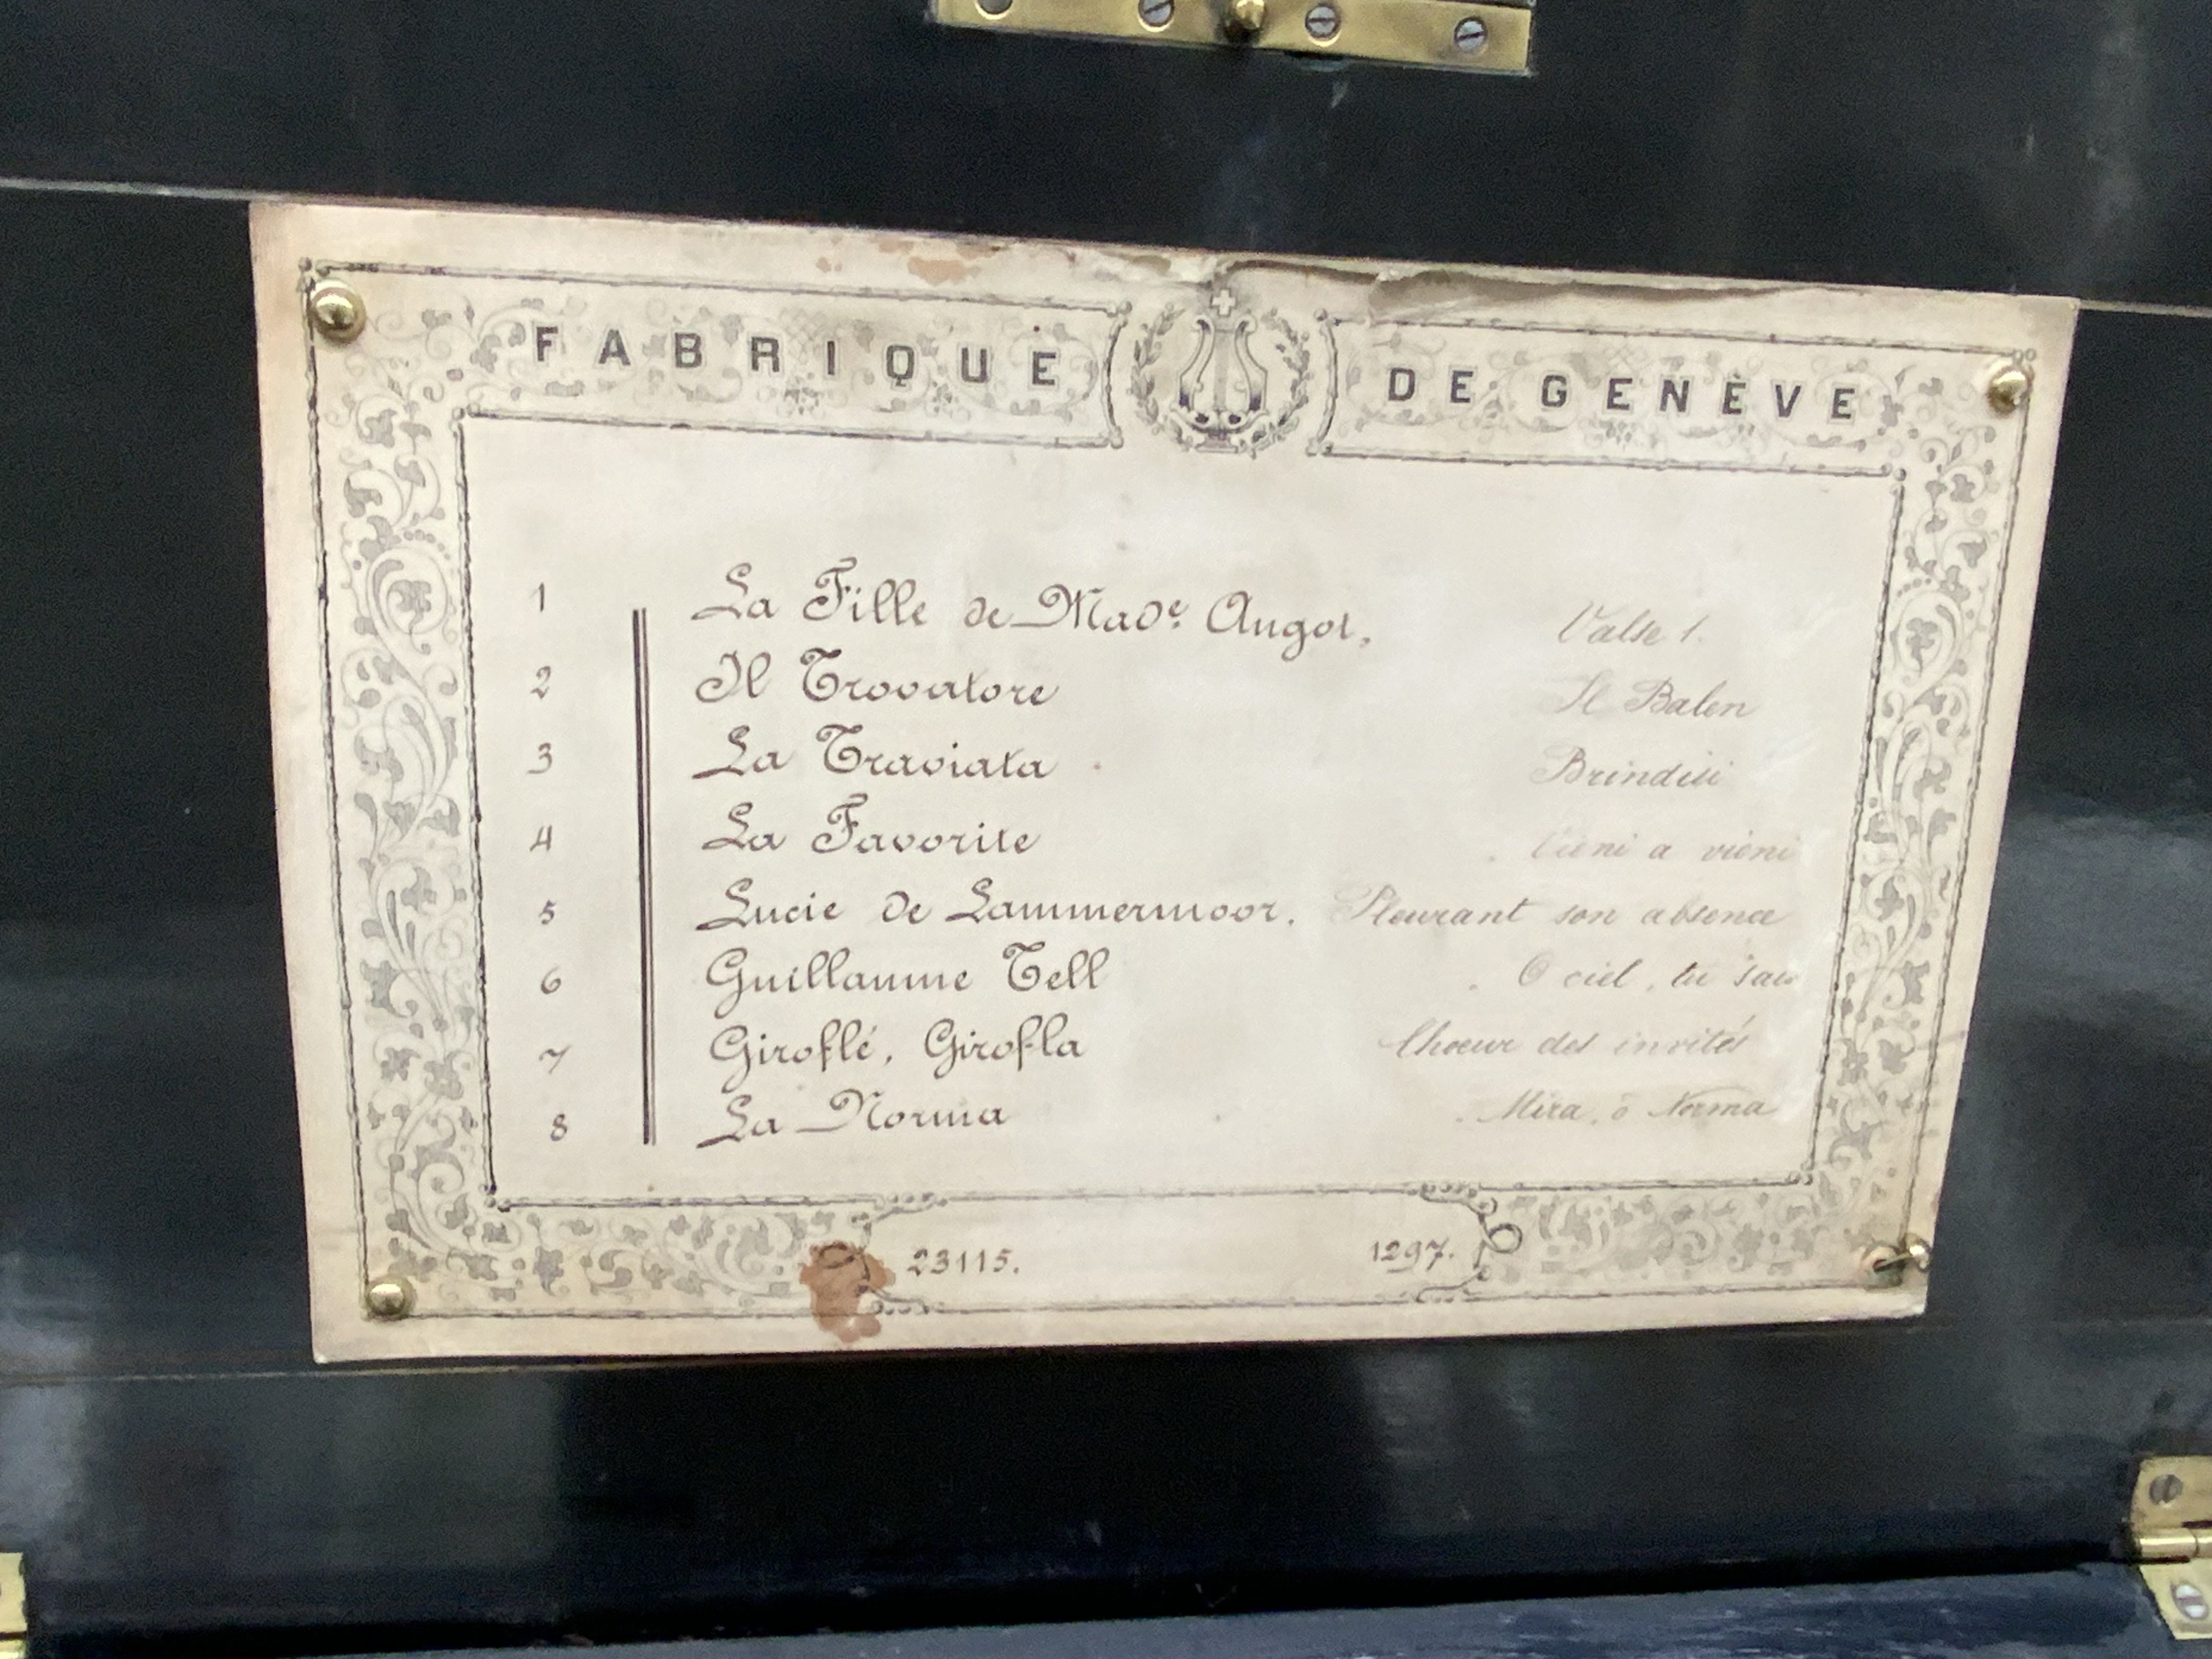 FABRIQUE DE GENÈVE
1 La Fille de Made Angot, Valse 1.
2 Il Trovatore Il Balen
3 La Traviata Brindisi
4 La Favorite Vieni a vieni
5 Lucie de Lammermoor. Pleurant son absence
6 Guillaume Tell O ciel, tu sais
7 Giroflé, Girofla Choeur des invités
8 La Norma Mira, ô Norma
23115. 1297.